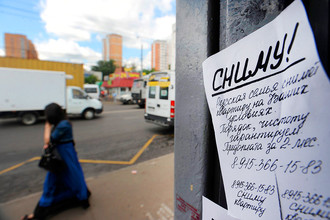 СНИМУ!
Русская семья снимет
квартиру на Ваших
условиях
Порядок, чистоту
гарантируем
Предоплата за 2 мес.
8.915-366-15-83
8.915-366-15-83
Сниму
квартиру
8.915-366
Сниму